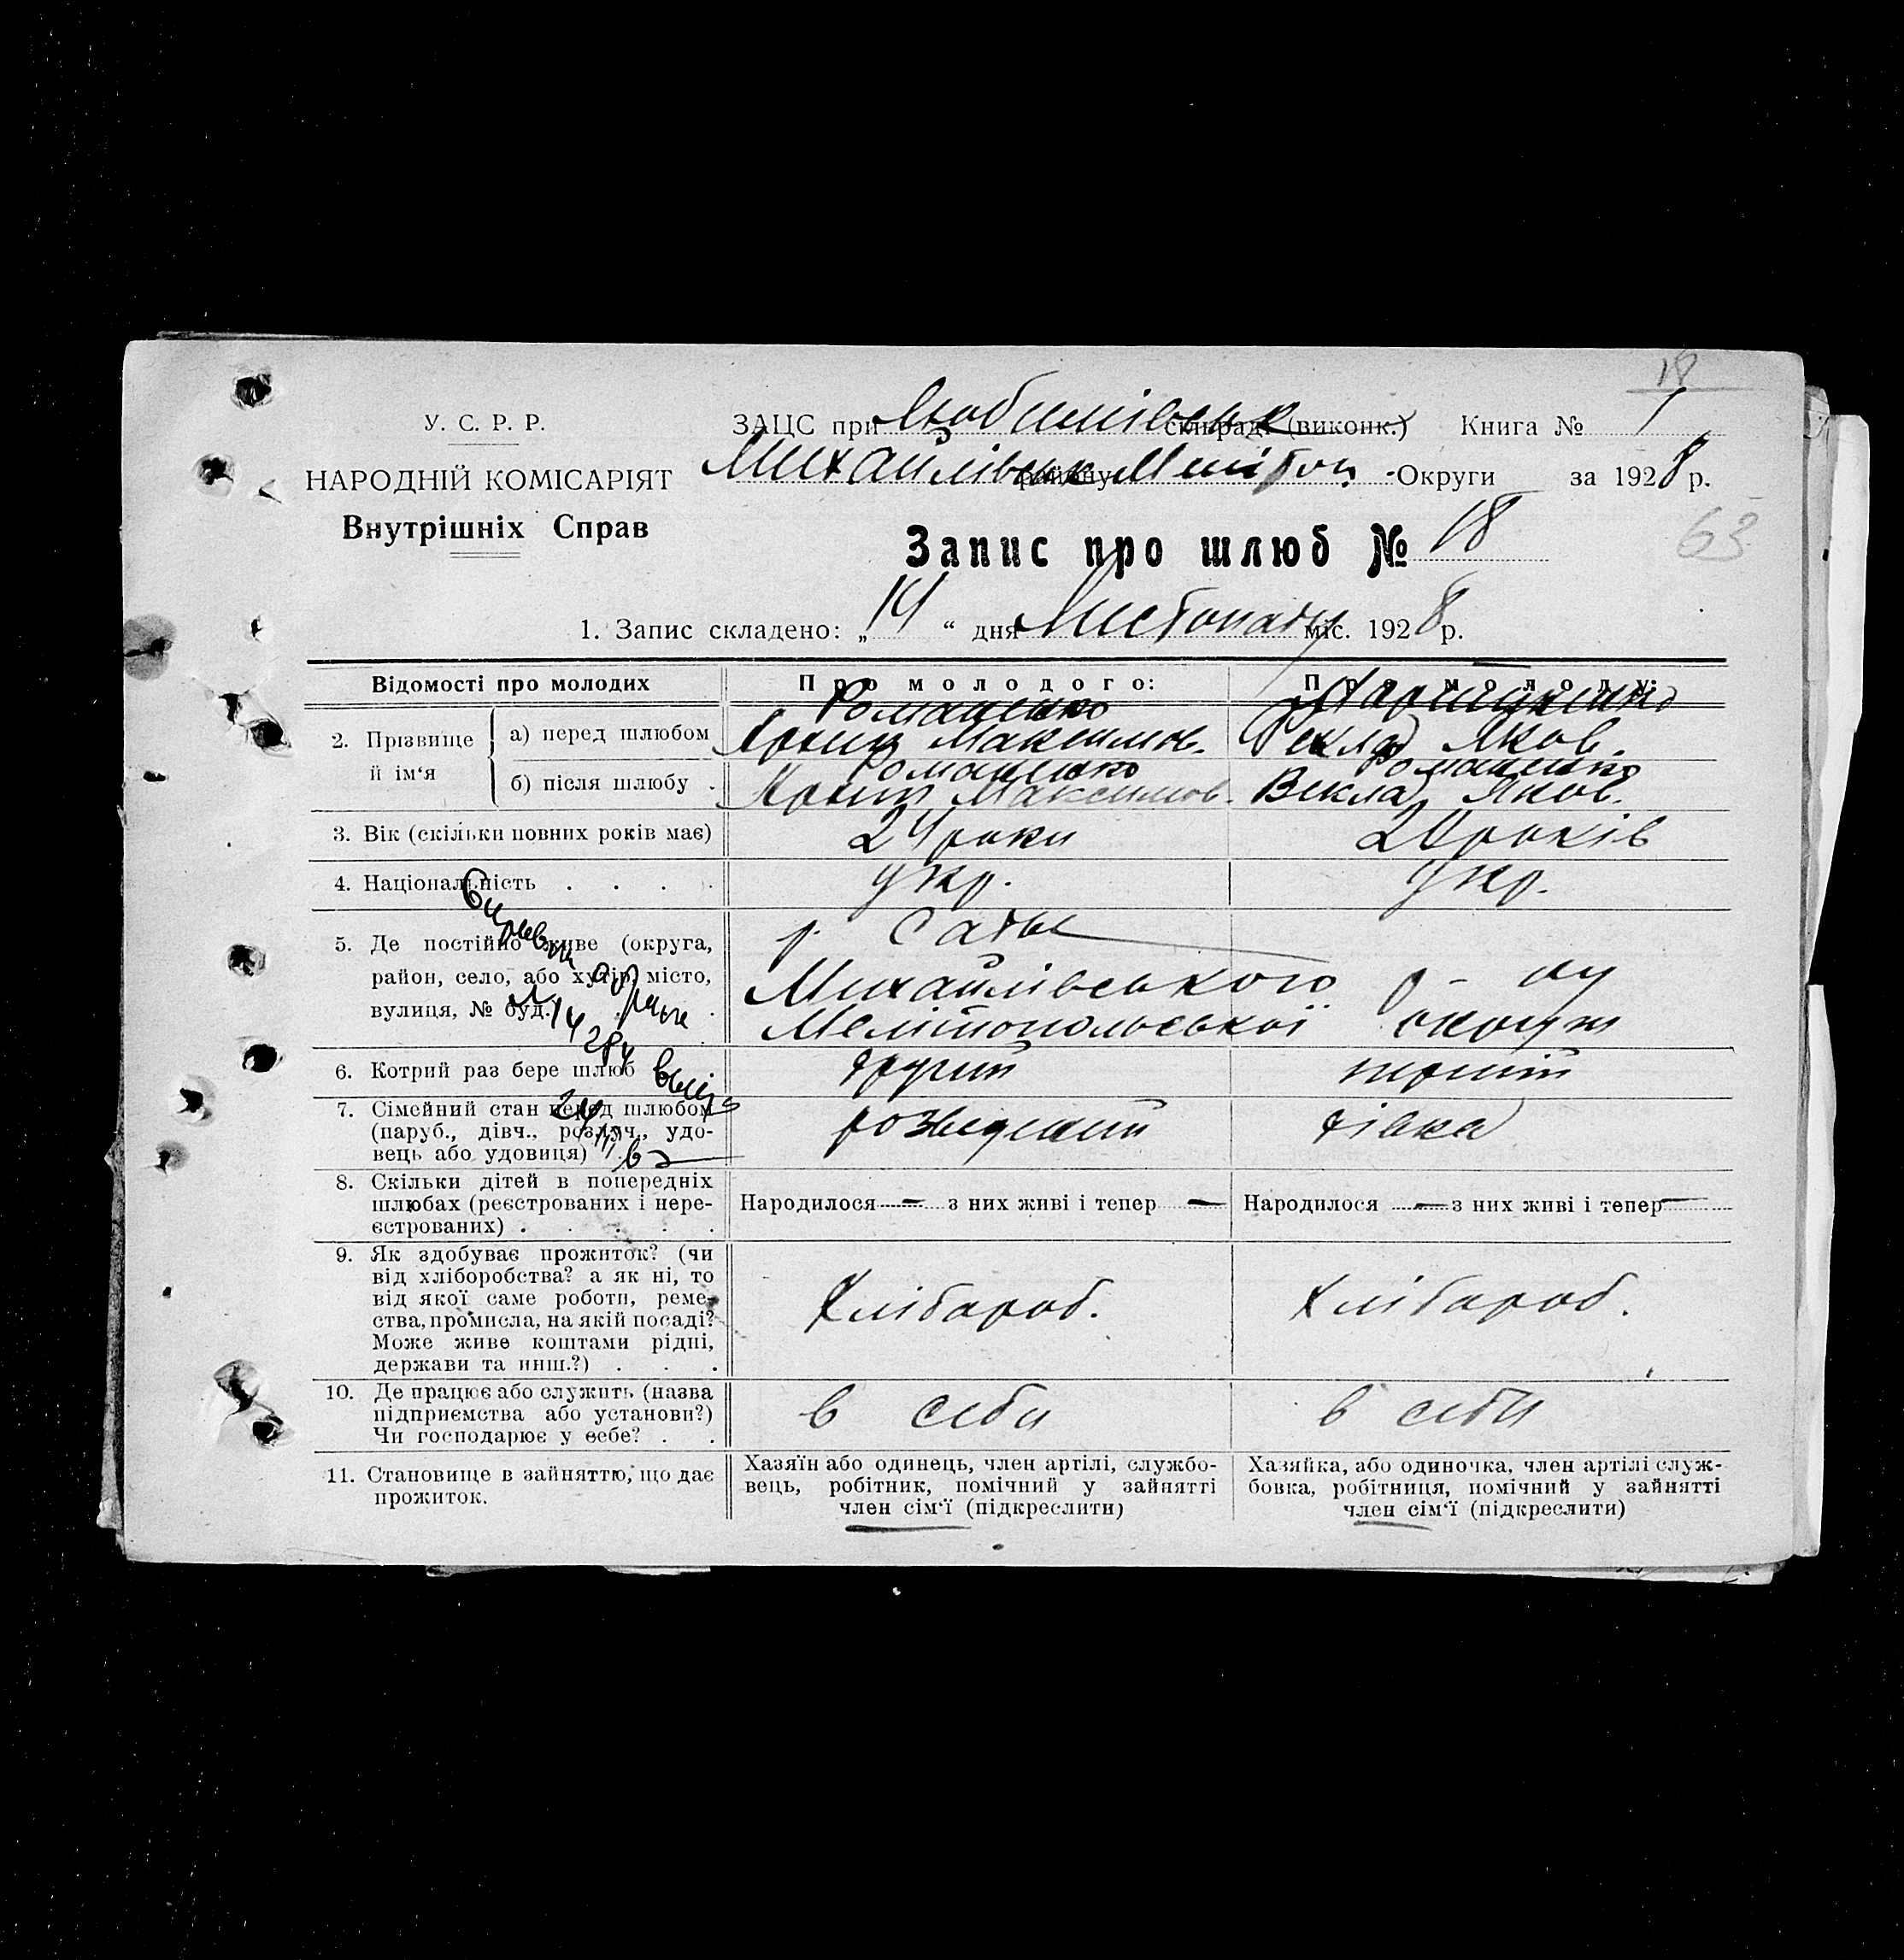 18
У. С. Р. Р.
ЗАЦС при Любимівськ сільраді (виконк.) Книга № 1
НАРОДНІЙ КОМІСАРІЯТ
Михайлівськ району Мелітоп. Округи за 1928 р.
Внутрішніх Справ
Запис про шлюб № 18
63
1. Запис складено: „14“ дня Листопаду міс. 1928 р.
Відомості про молодих
Про молодого:
Про молоду:
2. Прізвище й ім‘я
а) перед шлюбом
Романенко
Архип Максимов.
Векла Яков.
б) після шлюбу .
Романенко
Архип Максимов.
Романенко
Векла Яков.
3. Вік (скільки повних років має)
24 роки
20 років
4. Національність . . . .
укр.
укр.
5. Де постійно живе (округа,
район, село, або хутір, місто,
вулиця, № буд. . .
Сади
Михайлівського р-ну
Мелітопольської округи
6. Котрий раз бере шлюб
другий
перший
7. Сімейний стан перед шлюбом
(паруб., дівч., розлуч., удо-
вець або удовиця)
розведений
дівка
8. Скільки дітей в попередніх
шлюбах (реєстрованих і нере-
єстрованих) . . . . .
Народилося — з них живі і тепер —
Народилося — з них живі і тепер —
9. Як здобуває прожиток? (чи
від хліборобства? а як ні, то
від якої саме роботи, реме-
ства, промисла, на якій посаді?
Може живе коштами рідні,
держави та инш.?) . . .
Хлібароб.
Хлібароб.
10. Де працює або служить (назва
підприємства або установи?)
Чи господарює у себе? . .
в себи
в себи
11. Становище в зайняттю, що дає
прожиток.
Хазяїн або одинець, член артілі, службо-
вець, робітник, помічний у зайнятті
член сім‘ї (підкреслити)
Хазяйка, або одиночка, член артілі служ-
бовка, робітниця, помічний у зайнятті
член сім‘ї (підкреслити)